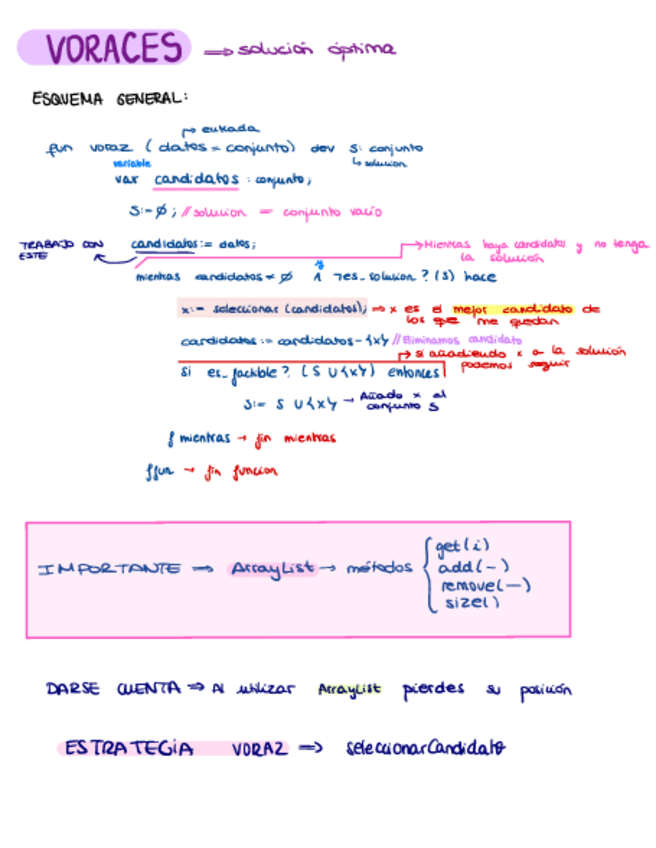 VORACES ⟹ solución óptima
ESQUEMA GENERAL:
↱ entrada
fun voraz ( datos = conjunto) dev S: conjunto
variable ↳ solucion
var candidatos : conjunto;
S:=∅; // solucion = conjunto vacío
TRABAJO CON ESTE
candidatos := datos;
→ Mientras haya candidatos y no tenga la solución
y
mientras candidatos ≠ ∅ ∧ ¬es_solucion? (S) hace
x:= seleccionar (candidatos); ⟹ x es el mejor candidato de los que me quedan
candidatos := candidatos - {x} // Eliminamos candidato
↱ si añadiendo x a la solución podemos seguir
si es_factible? (S ∪ {x}) entonces
S:= S ∪ {x} → Añado x al conjunto S
f mientras → fin mientras
ffun → fin funcion
IMPORTANTE ⟹ ArrayList → métodos { get(i)
add(-)
remove(—)
size()
DARSE CUENTA ⟹ Al utilizar ArrayList pierdes su posición
ESTRATEGIA VORAZ ⟹ seleccionarCandidato